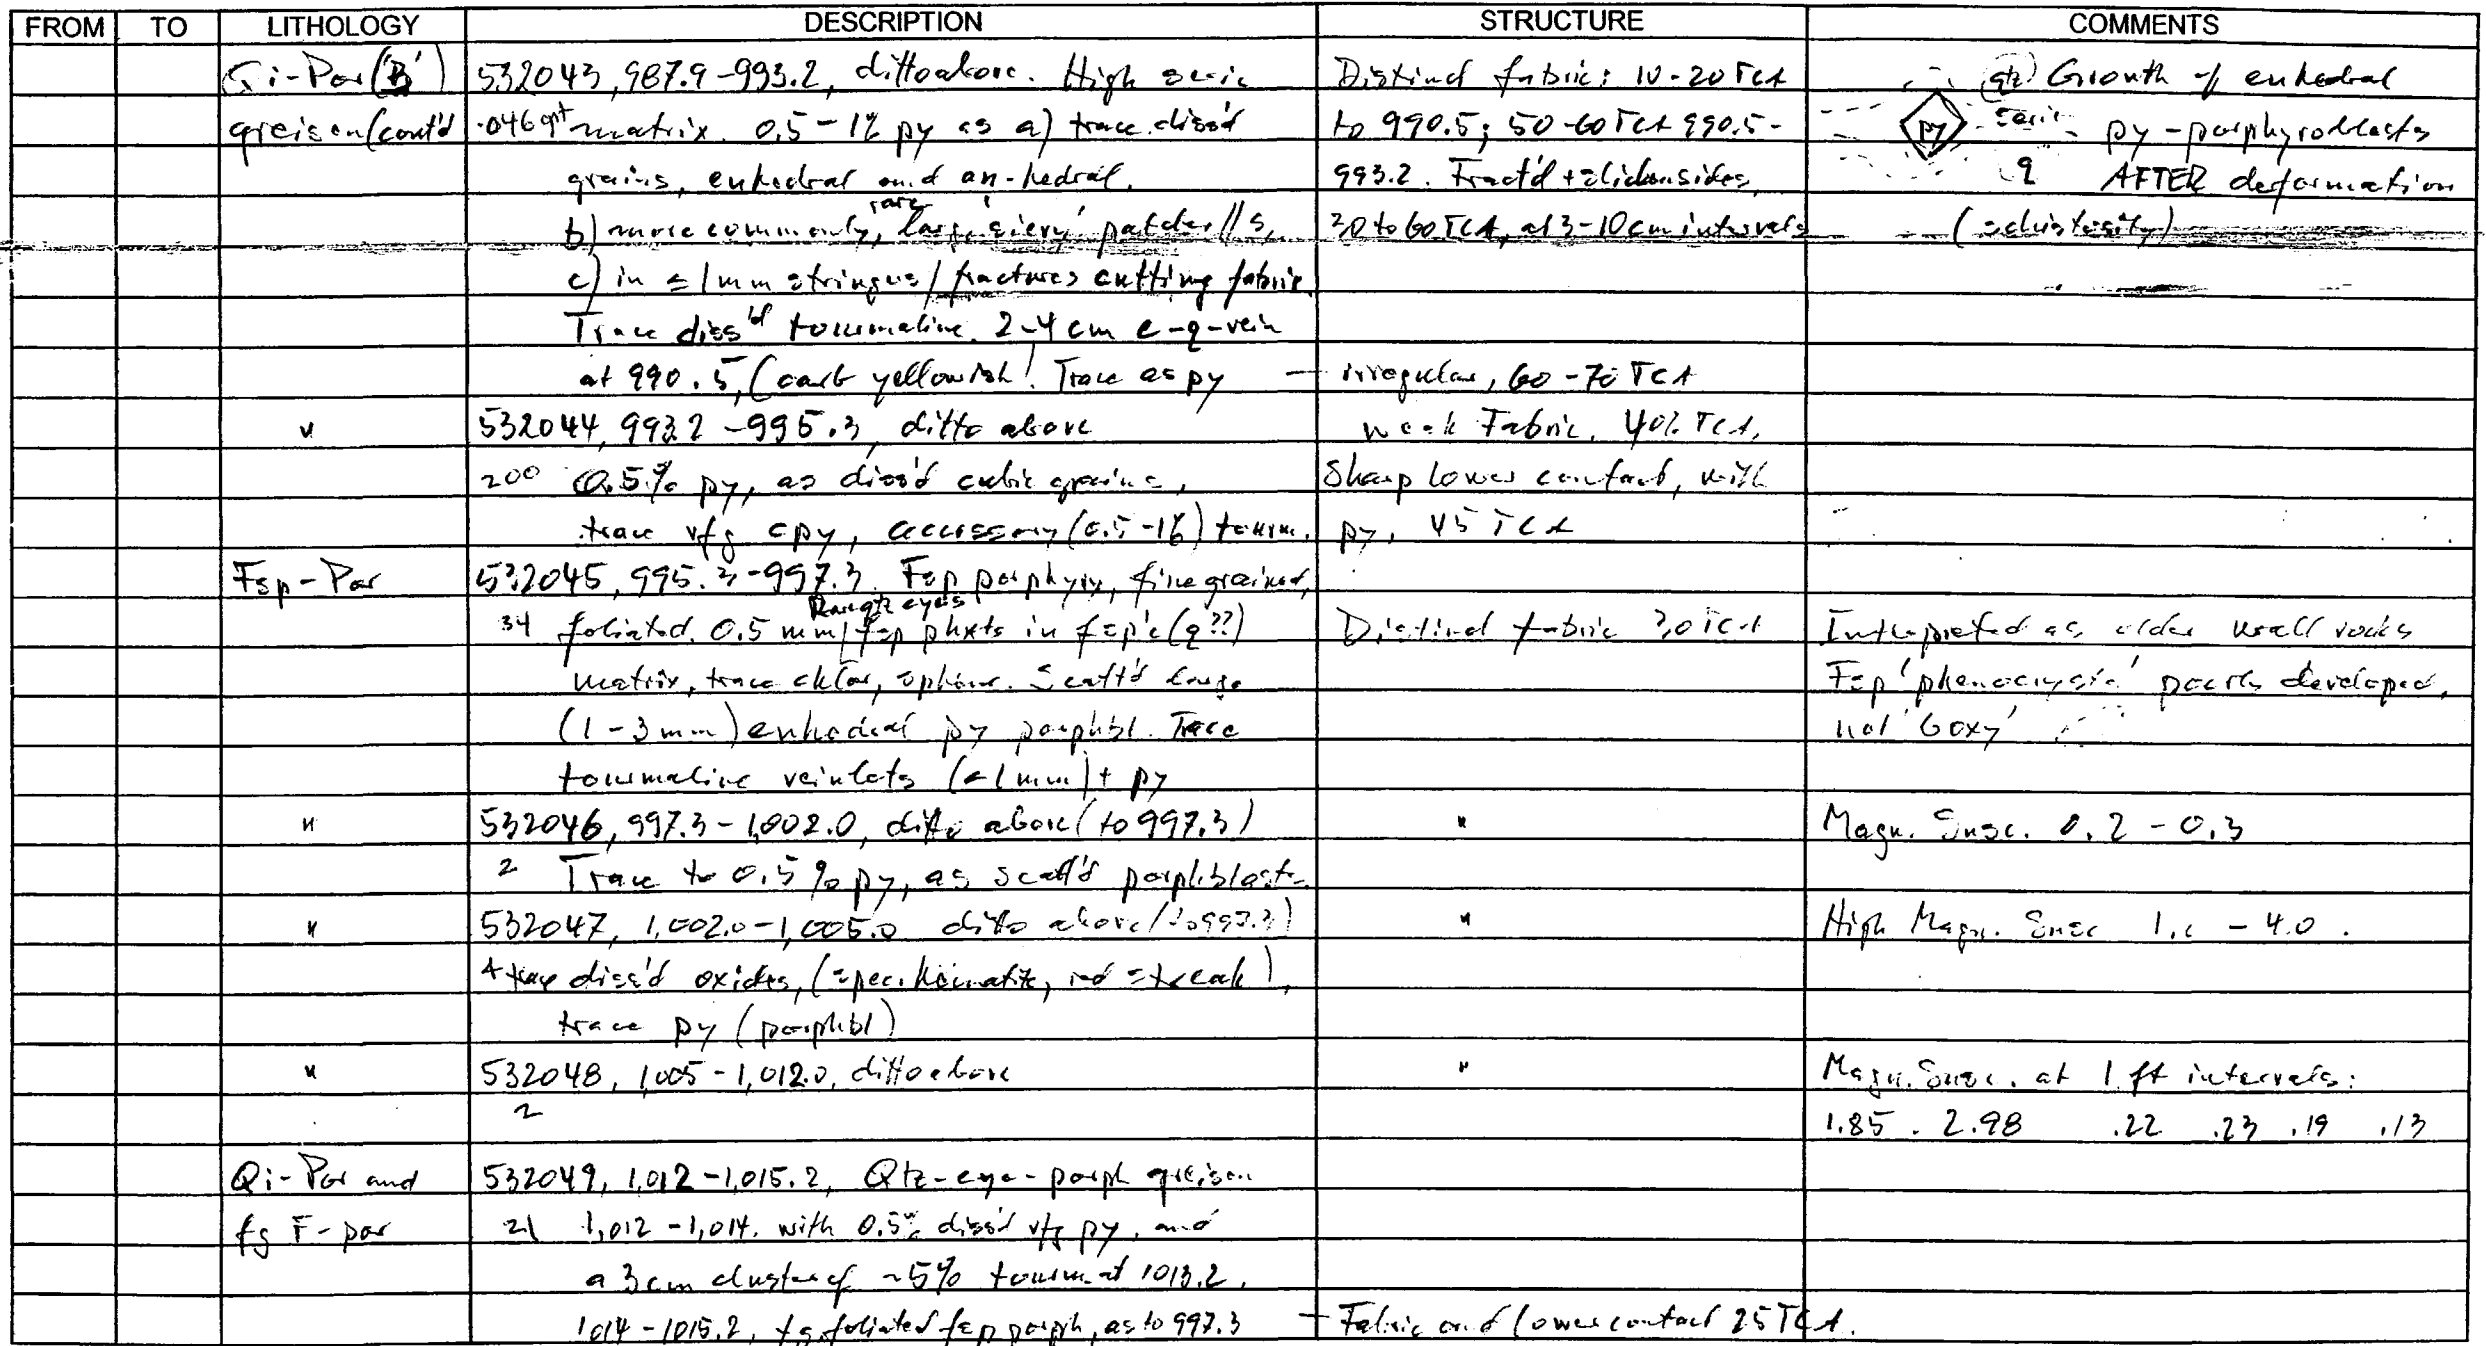 FROM TO LITHOLOGY DESCRIPTION STRUCTURE COMMENTS
Qi-Por (B) 532043, 987.9-993.2, ditto above. High seric Distinct fabric: 10-20 TCA qtz Growth of euhedral
greisen (cont'd .046 gpt matrix. 0.5-1% py as a) trace diss'd to 990.5; 50-60 TCA 990.5- py seric py-porphyroblasts
grains, euhedral and an-hedral. 993.2. Fract'd + slickensides, q AFTER deformation
b) more commonly, rare large, 'sievy' patches // S, 30 to 60 TCA, at 3-10 cm intervals (schistosity)
c) in ≤ 1mm stringers/fractures cutting fabric.
Trace diss'd tourmaline. 2-4 cm c-q-vein
at 990.5, (carb yellowish! Trace aspy - irregular, 60-70 TCA
" 532044, 993.2-995.3, ditto above weak Fabric. 40 TCA,
200 0.5% py, as diss'd cubic grains, Sharp lower contact, with
trace vfg cpy, accessory (0.5-1%) tourm. py, 45 TCA
Fsp-Por 532045, 995.3-997.3. Fsp porphyry, fine grained,
Rare qtz eyes
34 foliated. 0.5 mm fsp phxts in fsp'c (q??) Distinct fabric 30 TCA Interpreted as older wall rocks
matrix, trace chlor, sphene. Scatt'd large Fsp 'phenocrysts' poorly developed,
(1-3 mm) euhedral py porphbl. Trace not 'boxy'
tourmaline veinlets (<1mm) + py
" 532046, 997.3-1,002.0, ditto above (to 997.3) " Magn. Susc. 0.2 - 0.3
2 Trace to 0.5% py, as scatt'd porphblasts
" 532047, 1,002.0-1,005.0 ditto above (to 997.3) " High Magn. Susc 1.0 - 4.0.
4 trace diss'd oxides, (spec. hematite, red streak),
trace py (porphbl)
" 532048, 1,005-1,012.0, ditto above " Magn. Susc. at 1 ft intervals:
2 1.85 . 2.98 .22 .23 .19 .13
Qi-Por and 532049, 1,012-1,015.2, Qtz-eye-porph greisen
fg F-por 21 1,012-1,014. with 0.5% diss'd vfg py, and
a 3cm cluster of ~5% tourm. at 1013.2.
1014-1015.2, fg foliated fsp porph, as to 997.3 - Fabric and lower contact 25 TCA.